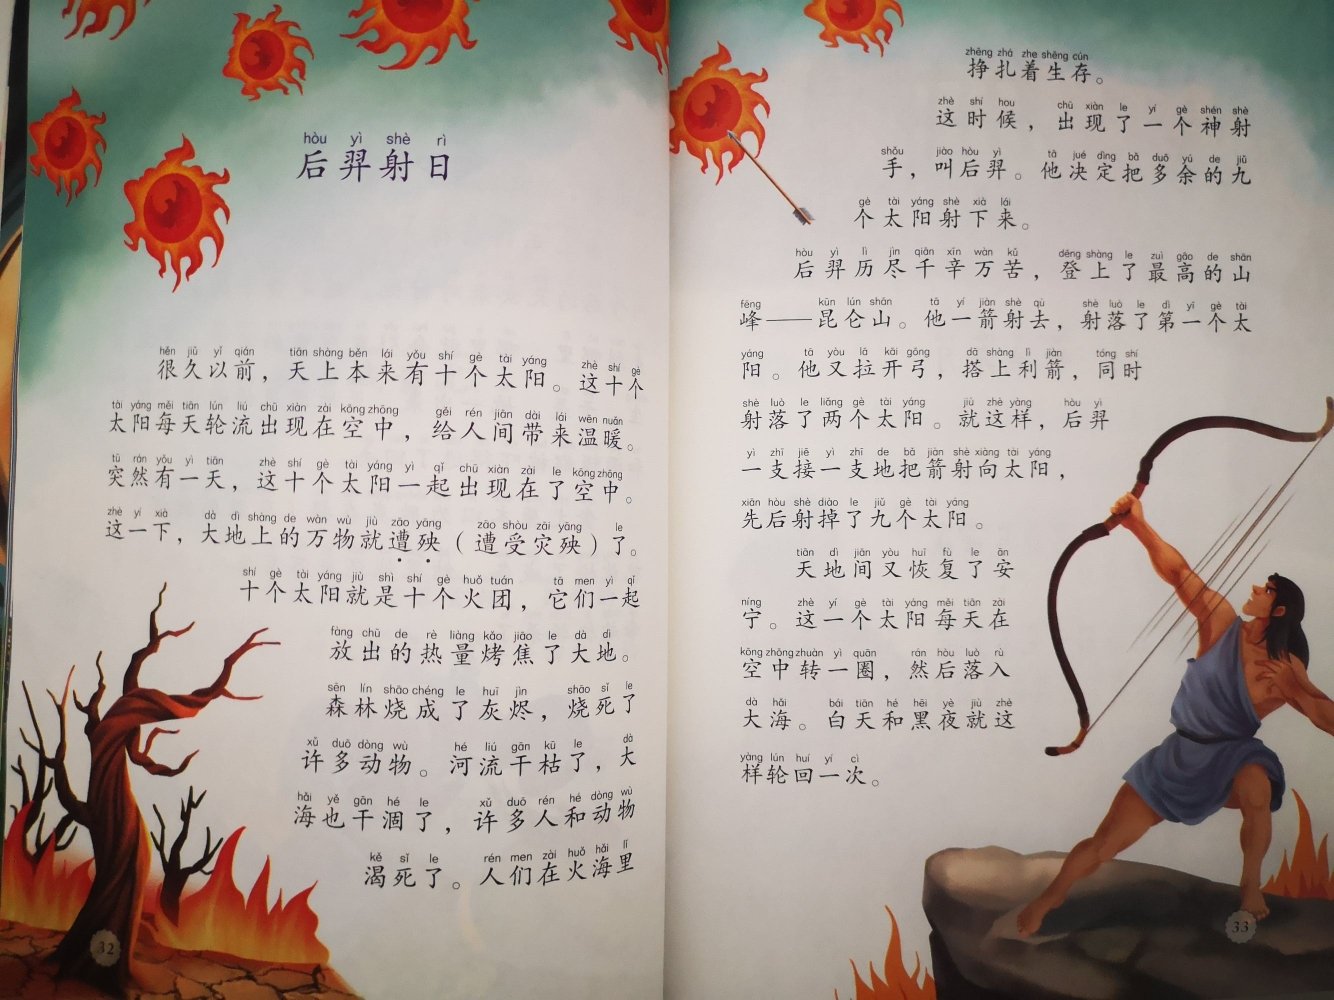 hòu yì shè rì
后羿射日
hěn jiǔ yǐ qián tiān shàng běn lái yǒu shí gè tài yáng zhè shí gè
很久以前，天上本来有十个太阳。这十个
tài yáng měi tiān lún liú chū xiàn zài kōng zhōng gěi rén jiān dài lái wēn nuǎn
太阳每天轮流出现在空中，给人间带来温暖。
tū rán yǒu yì tiān zhè shí gè tài yáng yì qǐ chū xiàn zài le kōng zhōng
突然有一天，这十个太阳一起出现在了空中。
zhè yí xià dà dì shàng de wàn wù jiù zāo yāng zāo shòu zāi yāng le
这一下，大地上的万物就遭殃（遭受灾殃）了。
shí gè tài yáng jiù shì shí gè huǒ tuán tā men yì qǐ
十个太阳就是十个火团，它们一起
fàng chū de rè liàng kǎo jiāo le dà dì
放出的热量烤焦了大地。
sēn lín shāo chéng le huī jìn shāo sǐ le
森林烧成了灰烬，烧死了
xǔ duō dòng wù hé liú gān kū le dà
许多动物。河流干枯了，大
hǎi yě gān hé le xǔ duō rén hé dòng wù
海也干涸了，许多人和动物
kě sǐ le rén men zài huǒ hǎi lǐ
渴死了。人们在火海里
32
zhēng zhá zhe shēng cún
挣扎着生存。
zhè shí hou chū xiàn le yí gè shén shè
这时候，出现了一个神射
shǒu jiào hòu yì tā jué dìng bǎ duō yú de jiǔ
手，叫后羿。他决定把多余的九
gè tài yáng shè xià lái
个太阳射下来。
hòu yì lì jìn qiān xīn wàn kǔ dēng shàng le zuì gāo de shān
后羿历尽千辛万苦，登上了最高的山
fēng kūn lún shān tā yí jiàn shè qù shè luò le dì yī gè tài
峰——昆仑山。他一箭射去，射落了第一个太
yáng tā yòu lā kāi gōng dā shàng lì jiàn tóng shí
阳。他又拉开弓，搭上利箭，同时
shè luò le liǎng gè tài yáng jiù zhè yàng hòu yì
射落了两个太阳。就这样，后羿
yì zhī jiē yì zhī de bǎ jiàn shè xiàng tài yáng
一支接一支地把箭射向太阳，
xiān hòu shè diào le jiǔ gè tài yáng
先后射掉了九个太阳。
tiān dì jiān yòu huī fù le ān
天地间又恢复了安
níng zhè yí gè tài yáng měi tiān zài
宁。这一个太阳每天在
kōng zhōng zhuàn yì quān rán hòu luò rù
空中转一圈，然后落入
dà hǎi bái tiān hé hēi yè jiù zhè
大海。白天和黑夜就这
yàng lún huí yí cì
样轮回一次。
33